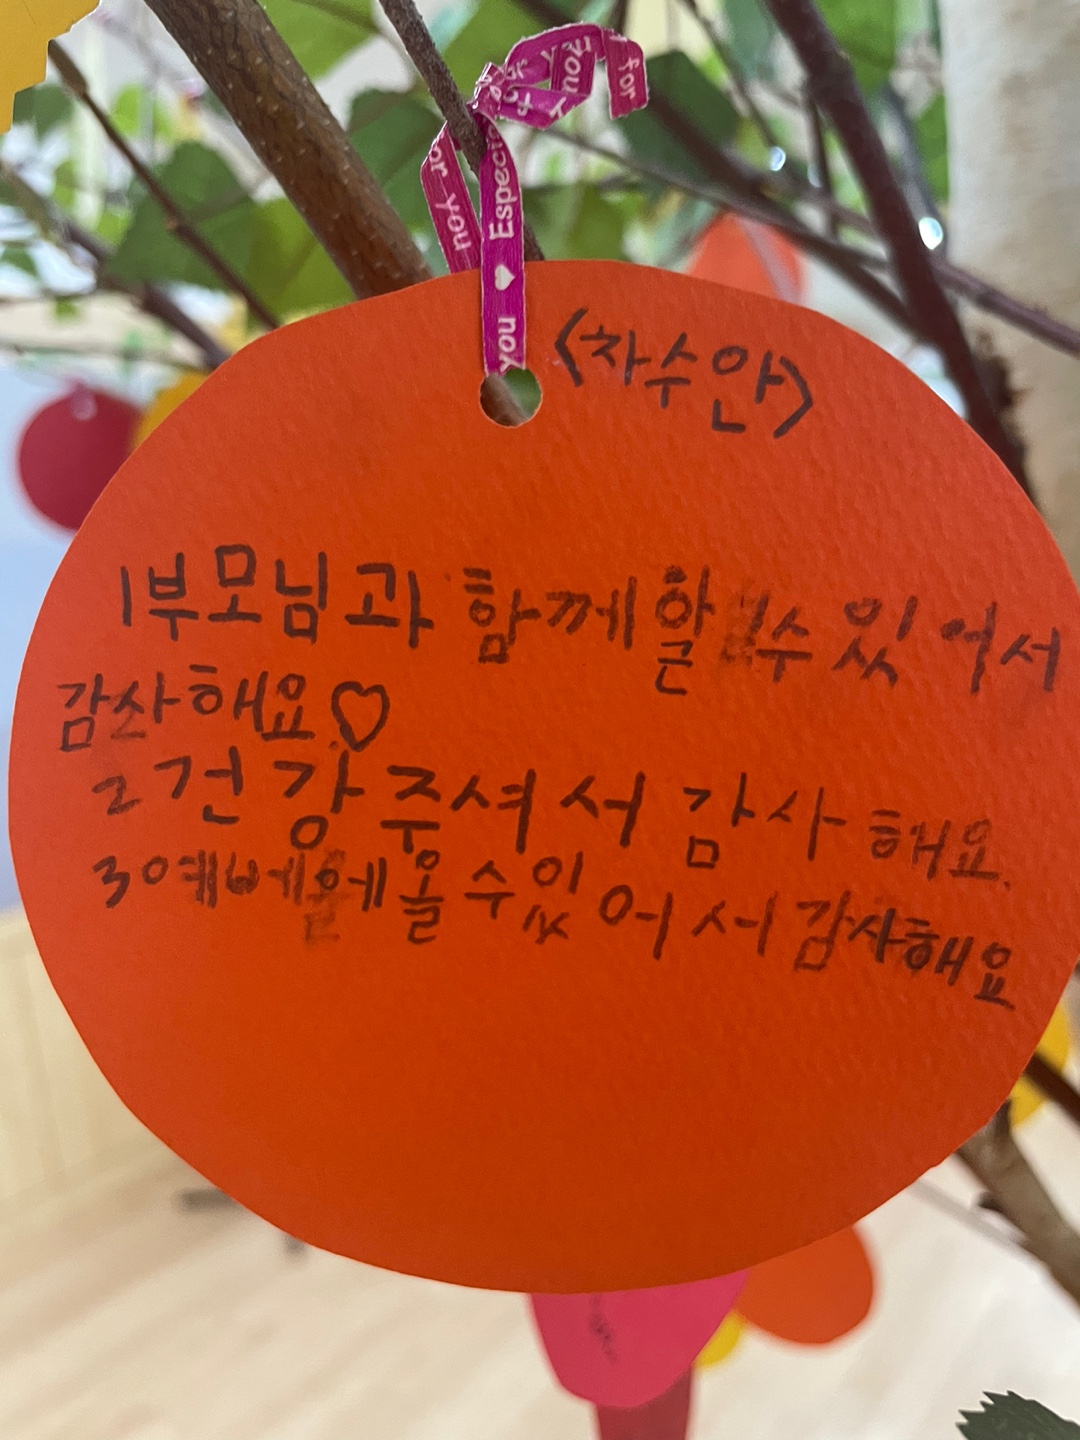 for you
Especi
you
for
you
<차수안>
1부모님과 함께할 수 있어서
감사해요♡
2건강주셔서 감사해요.
3예베에올수있어서감사해요